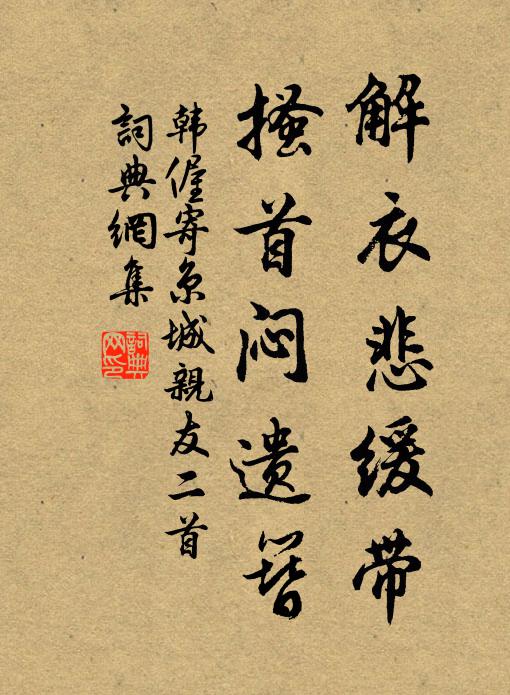 解衣悲缓带
搔首闷遗簪
韩偓寄京城親友二首
詞典網集
詞典網印